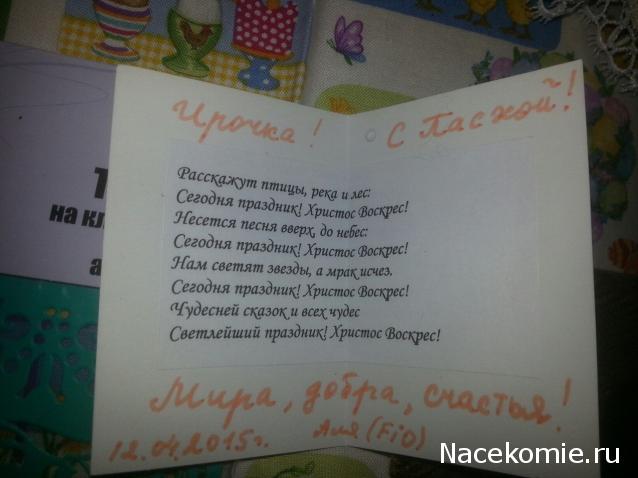 Ирочка! С Пасхой!
Расскажут птицы, река и лес:
Сегодня праздник! Христос Воскрес!
Несется песня вверх, до небес:
Сегодня праздник! Христос Воскрес!
Нам светят звезды, а мрак исчез.
Сегодня праздник! Христос Воскрес!
Чудесней сказок и всех чудес
Светлейший праздник! Христос Воскрес!
Мира, добра, счастья!
12.04.2015г. Аля (FiO)
на кл
Nacekomie.ru